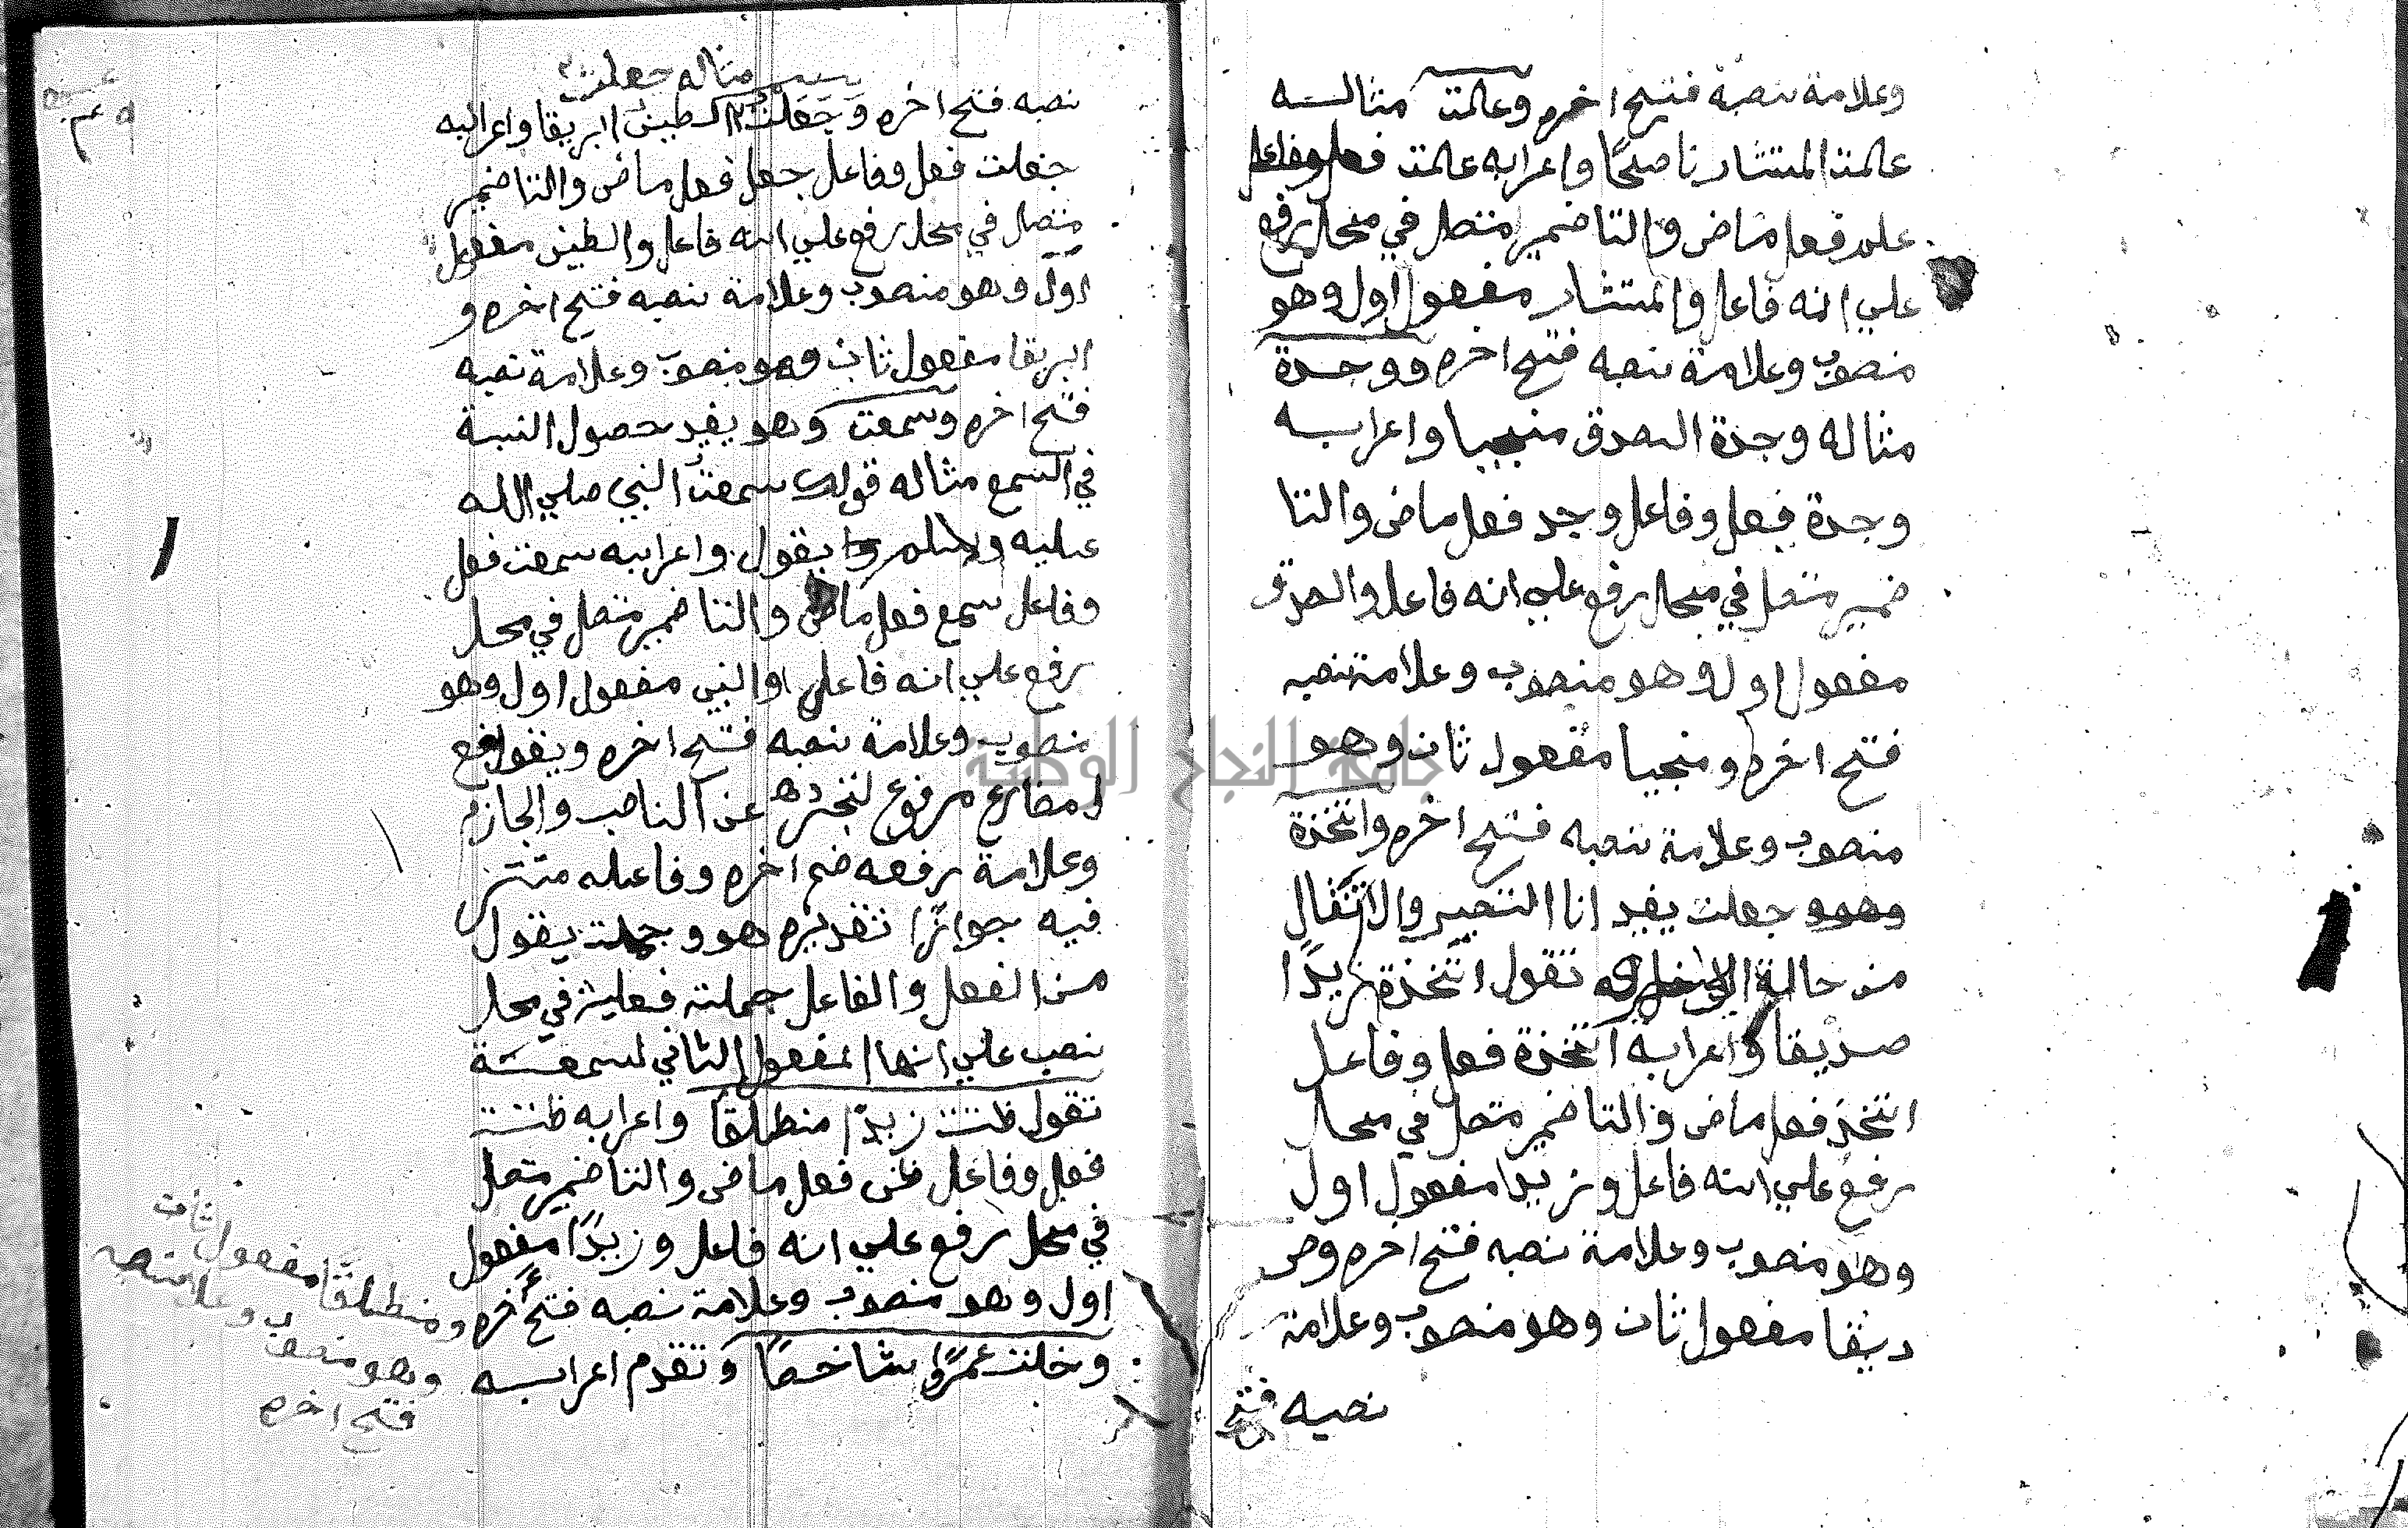 وعلامة نصبه فتح اخره وعلمت مثالـــه
علمت المتشار ناصحًا واعرابه علمت فعل وفاعل
علم فعل ماض والتا ضمير متصل في محل رفع
علي انه فاعل والمتشار مفعول اول وهو
منصوب وعلامة نصبه فتح اخره ووجدة
مثاله وجدة الصدق منجيا واعرابـــه
وجدة فعل وفاعل وجد فعل ماض والتا
ضمير متصل في محل رفع علي انه فاعل والصدق
مفعول اول وهو منصوب وعلامة نصبه
فتح اخره ومنجيا مفعول ثان وهو
منصوب وعلامة نصبه فتح اخره واتخذة
وهو جعلت يفيد انا التصيير والانتقال
من حالة الي تقول اتخذة زيدًا
صديقا واعرابه اتخذة فعل وفاعل
اتخذ فعل ماض والتا ضمير متصل في محل
رفع علي انه فاعل وزيدا مفعول اول
وهو منصوب وعلامة نصبه فتح اخره وص
ديقا مفعول ثان وهو منصوب وعلامة
نصبه فتح
مثاله جعلت
نصبه فتح اخره وجعلت الطين ابريقا واعرابه
جعلت فعل وفاعل جعل فعل ماض والتا ضمير
متصل في محل رفع علي انه فاعل والطين مفعول
اول وهو منصوب وعلامة نصبه فتح اخره و
ابريقا مفعول ثان وهو منصوب وعلامة نصبه
فتح اخره وسمعت وهو يفيد حصول النسبة
في السمع مثاله قولك سمعت النبي صلي الله
عليه وسلم يقول واعرابه سمعت فعل
وفاعل سمع فعل ماض والتا ضمير متصل في محل
رفع علي انه فاعل والنبي مفعول اول وهو
منصوب وعلامة نصبه فتح اخره ويقول فع
ل مضارع مرفوع لتجرده عن الناصب والجازم
وعلامة رفعه ضم اخره وفاعله مستتر
فيه جوازًا تقديره هو وجملت يقول
من الفعل والفاعل جملته فعلية في محل
نصب علي انها المفعول الثاني لسمعـــة
تقول ظننت زيدًا منطلقًا واعرابه ظننت
فعل وفاعل ظن فعل ماض والتا ضمير متصل
في محل رفع علي انه فاعل وزيدًا مفعول
اول وهو منصوب وعلامة نصبه فتح اخره
وخلت عمرًوا شاخصًا وتقدم اعرابـــه
ومنطلقًا مفعول ثان
وهو منصوب وعلامة نصبه
فتح اخره
جامعة النجاح الوطنية